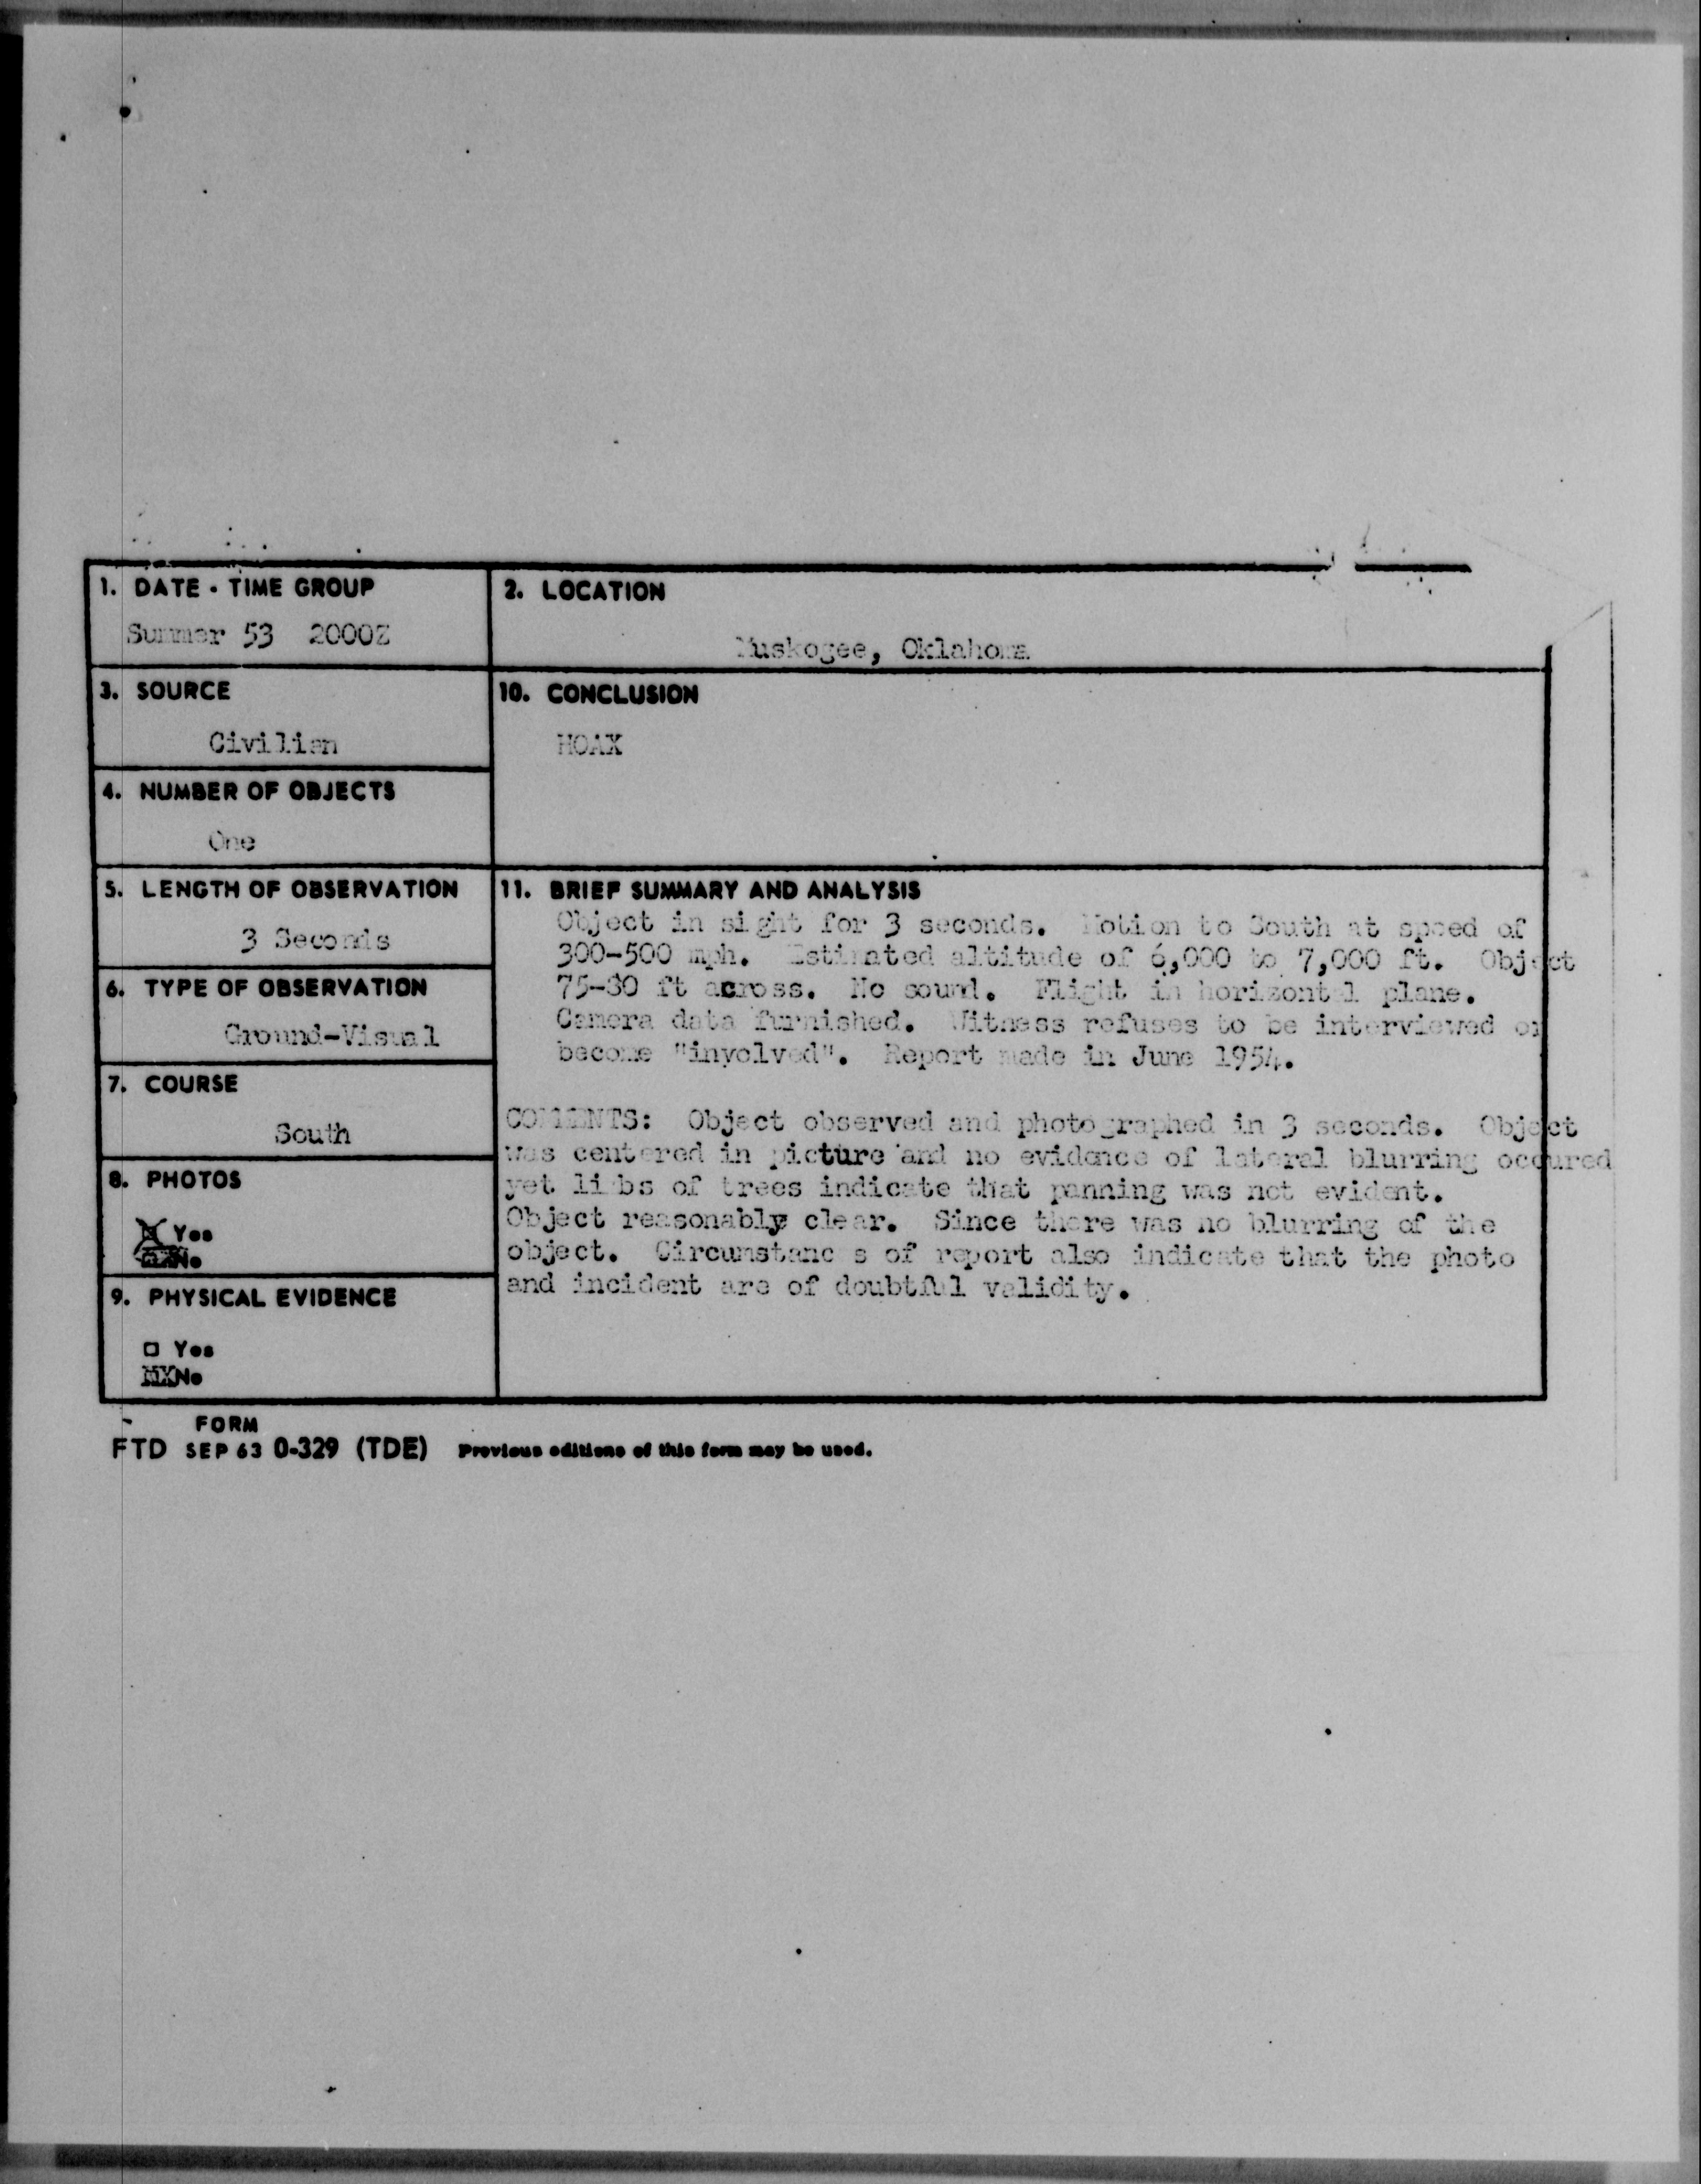 1. DATE - TIME GROUP
Summer 53 2000Z
2. LOCATION
Muskogee, Oklahoma
3. SOURCE
Civilian
10. CONCLUSION
HOAX
4. NUMBER OF OBJECTS
One
5. LENGTH OF OBSERVATION
3 Seconds
11. BRIEF SUMMARY AND ANALYSIS
Object in sight for 3 seconds. Motion to South at speed of
300-500 mph. Estimated altitude of 6,000 to 7,000 ft. Object
75-80 ft across. No sound. Flight in horizontal plane.
Camera data furnished. Witness refuses to be interviewed or
become "involved". Report made in June 1954.
COMMENTS: Object observed and photographed in 3 seconds. Object
was centered in picture and no evidence of lateral blurring occured
yet limbs of trees indicate that panning was not evident.
Object reasonably clear. Since there was no blurring of the
object. Circumstances of report also indicate that the photo
and incident are of doubtful validity.
6. TYPE OF OBSERVATION
Ground-Visual
7. COURSE
South
8. PHOTOS
X Yes
No
9. PHYSICAL EVIDENCE
□ Yes
XX No
FORM
FTD SEP 63 0-329 (TDE) Previous editions of this form may be used.